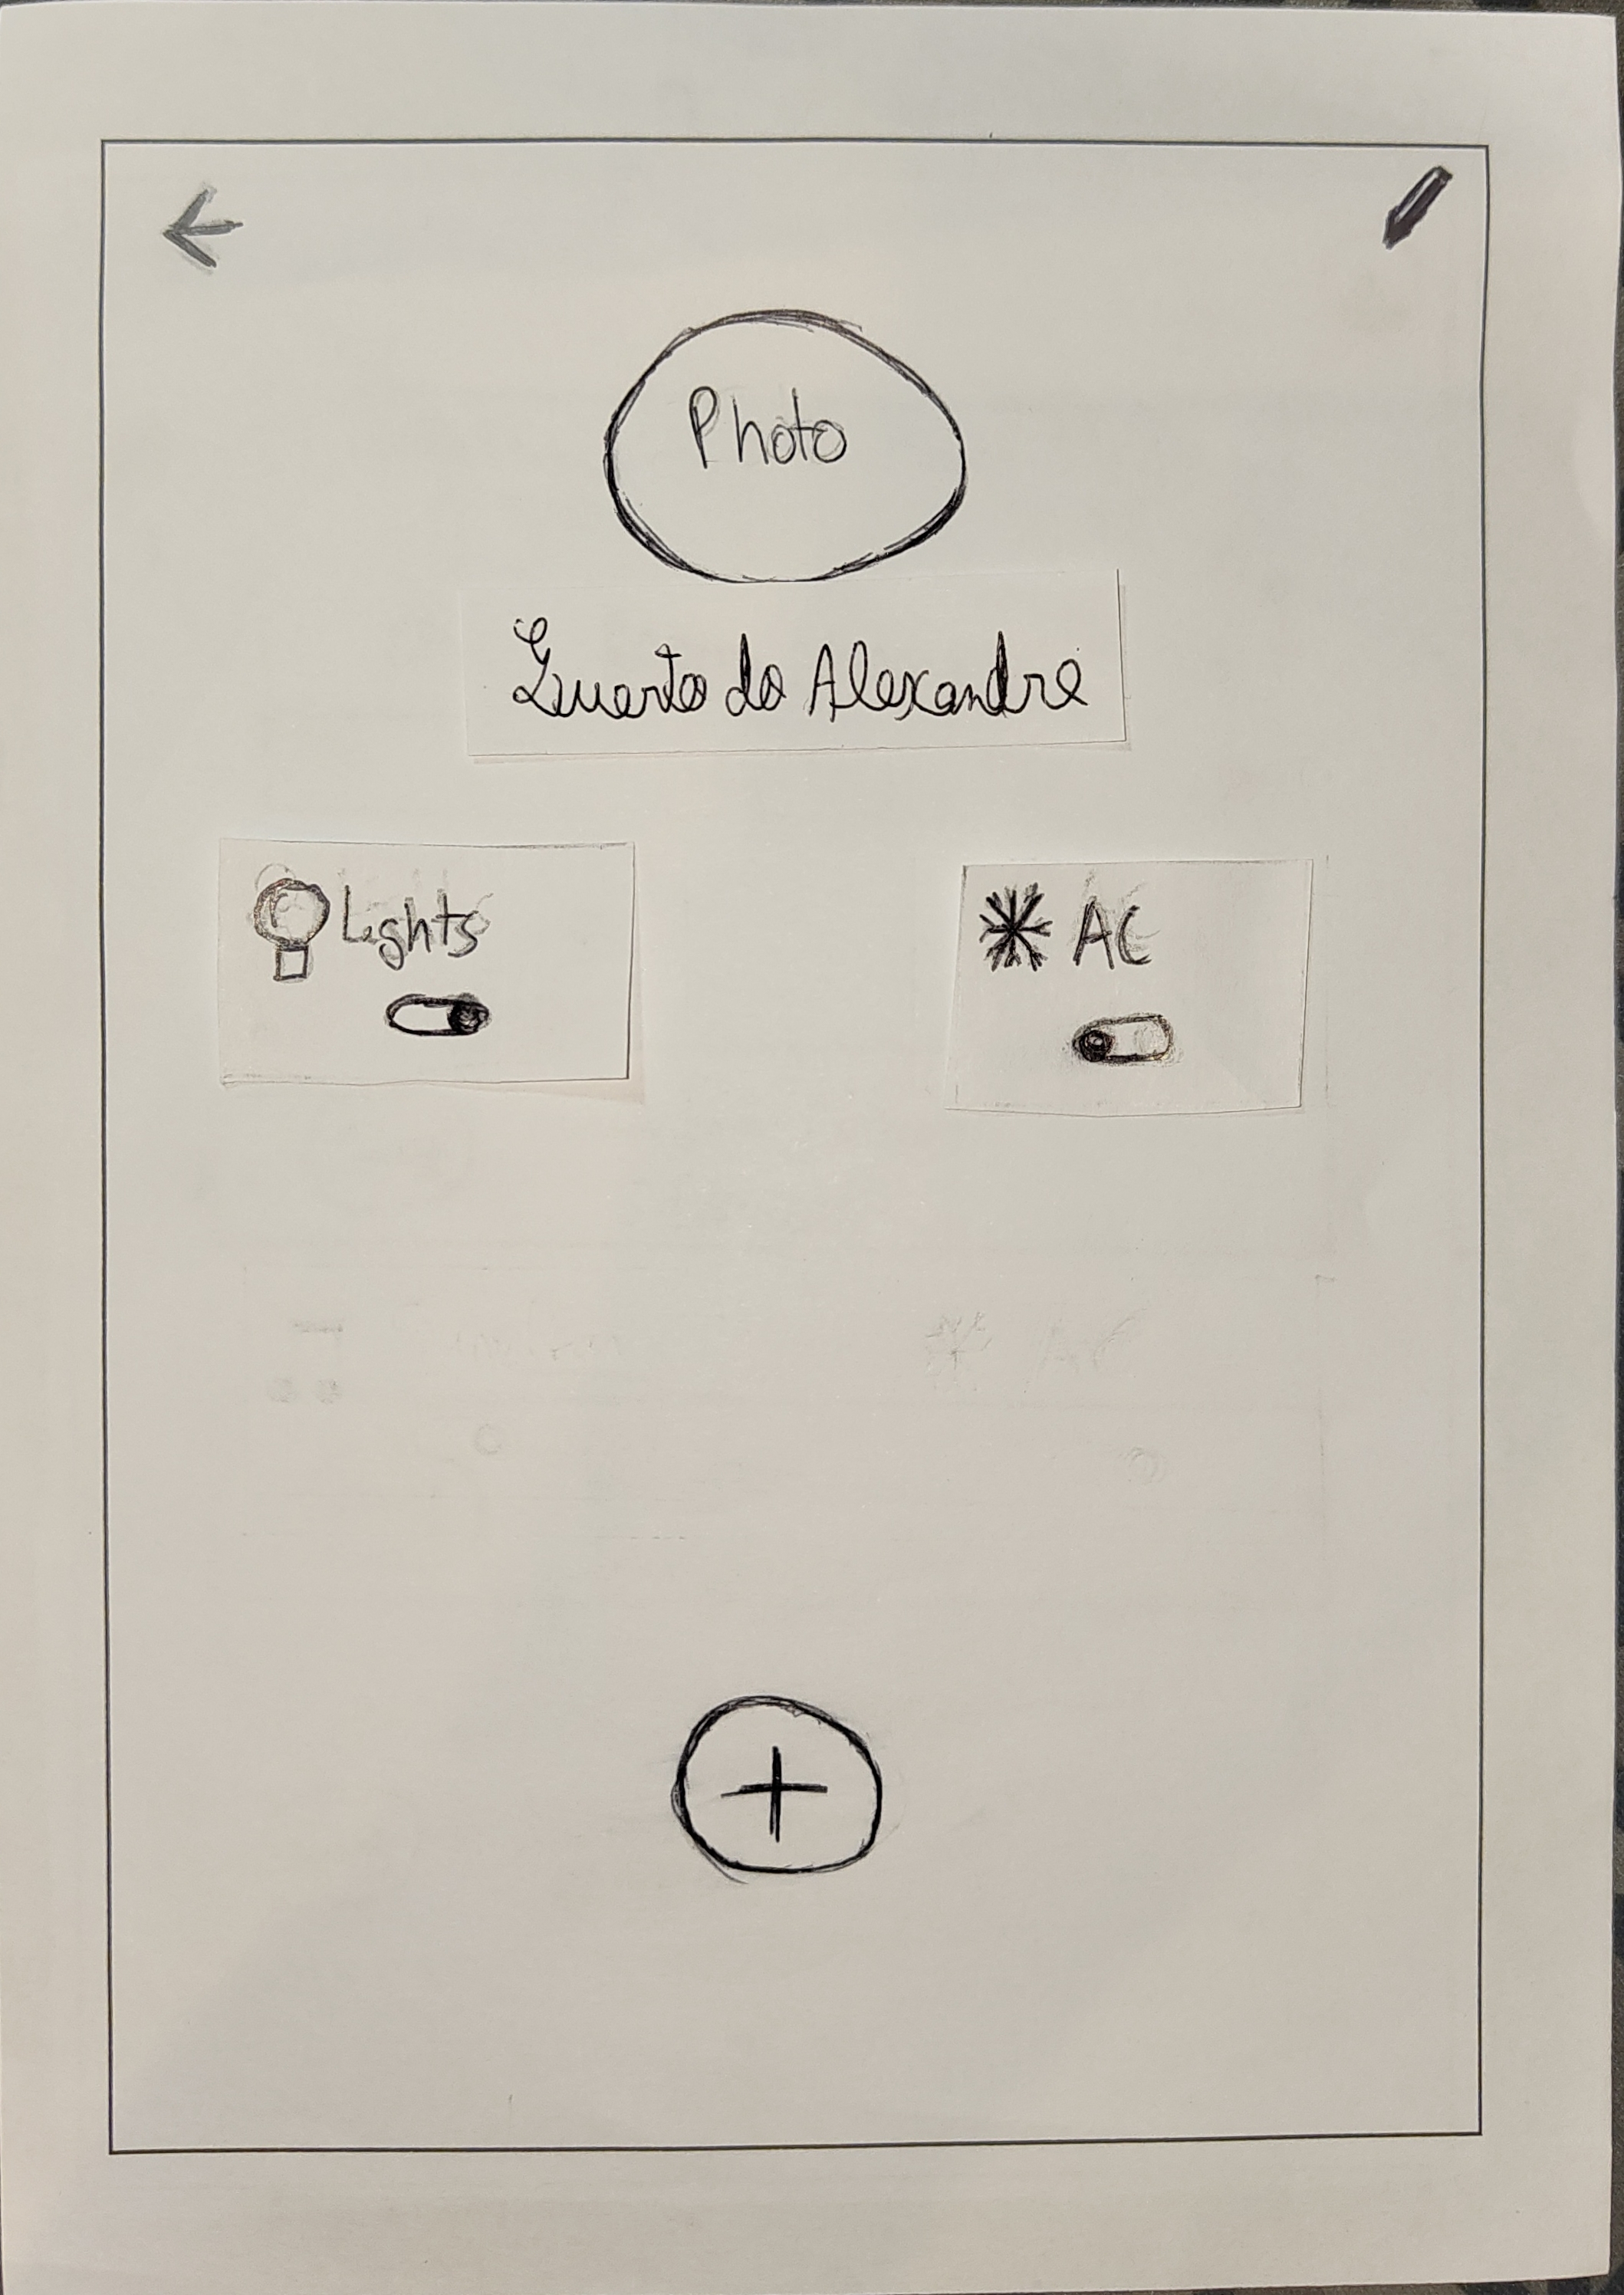 Photo
Quarto do Alexandre
Lights
AC
AC